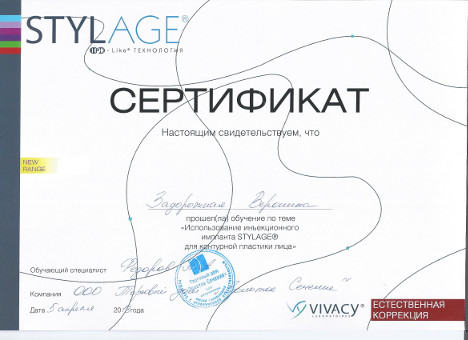 STYLAGE®
IPN-Like® ТЕХНОЛОГИЯ
СЕРТИФИКАТ
Настоящим свидетельствуем, что
NEW
RANGE
Задорожная Вероника
прошел(ла) обучение по теме
«Использование инъекционного
импланта STYLAGE®
для контурной пластики лица»
Обучающий специалист
Компания ООО Торговый дом Золотое Сечение
Дата 5 апреля
VIVACY®
LABORATOIRES
ЕСТЕСТВЕННАЯ
КОРРЕКЦИЯ